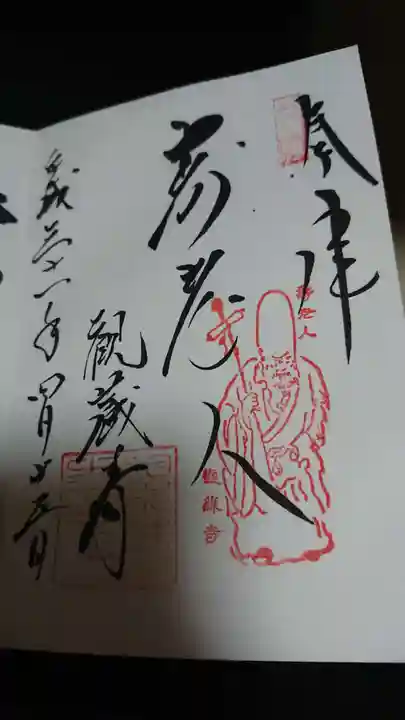 奉拝
寿老人
観蔵寺
平成三十一年四月二十五日
寿老人
観蔵寺